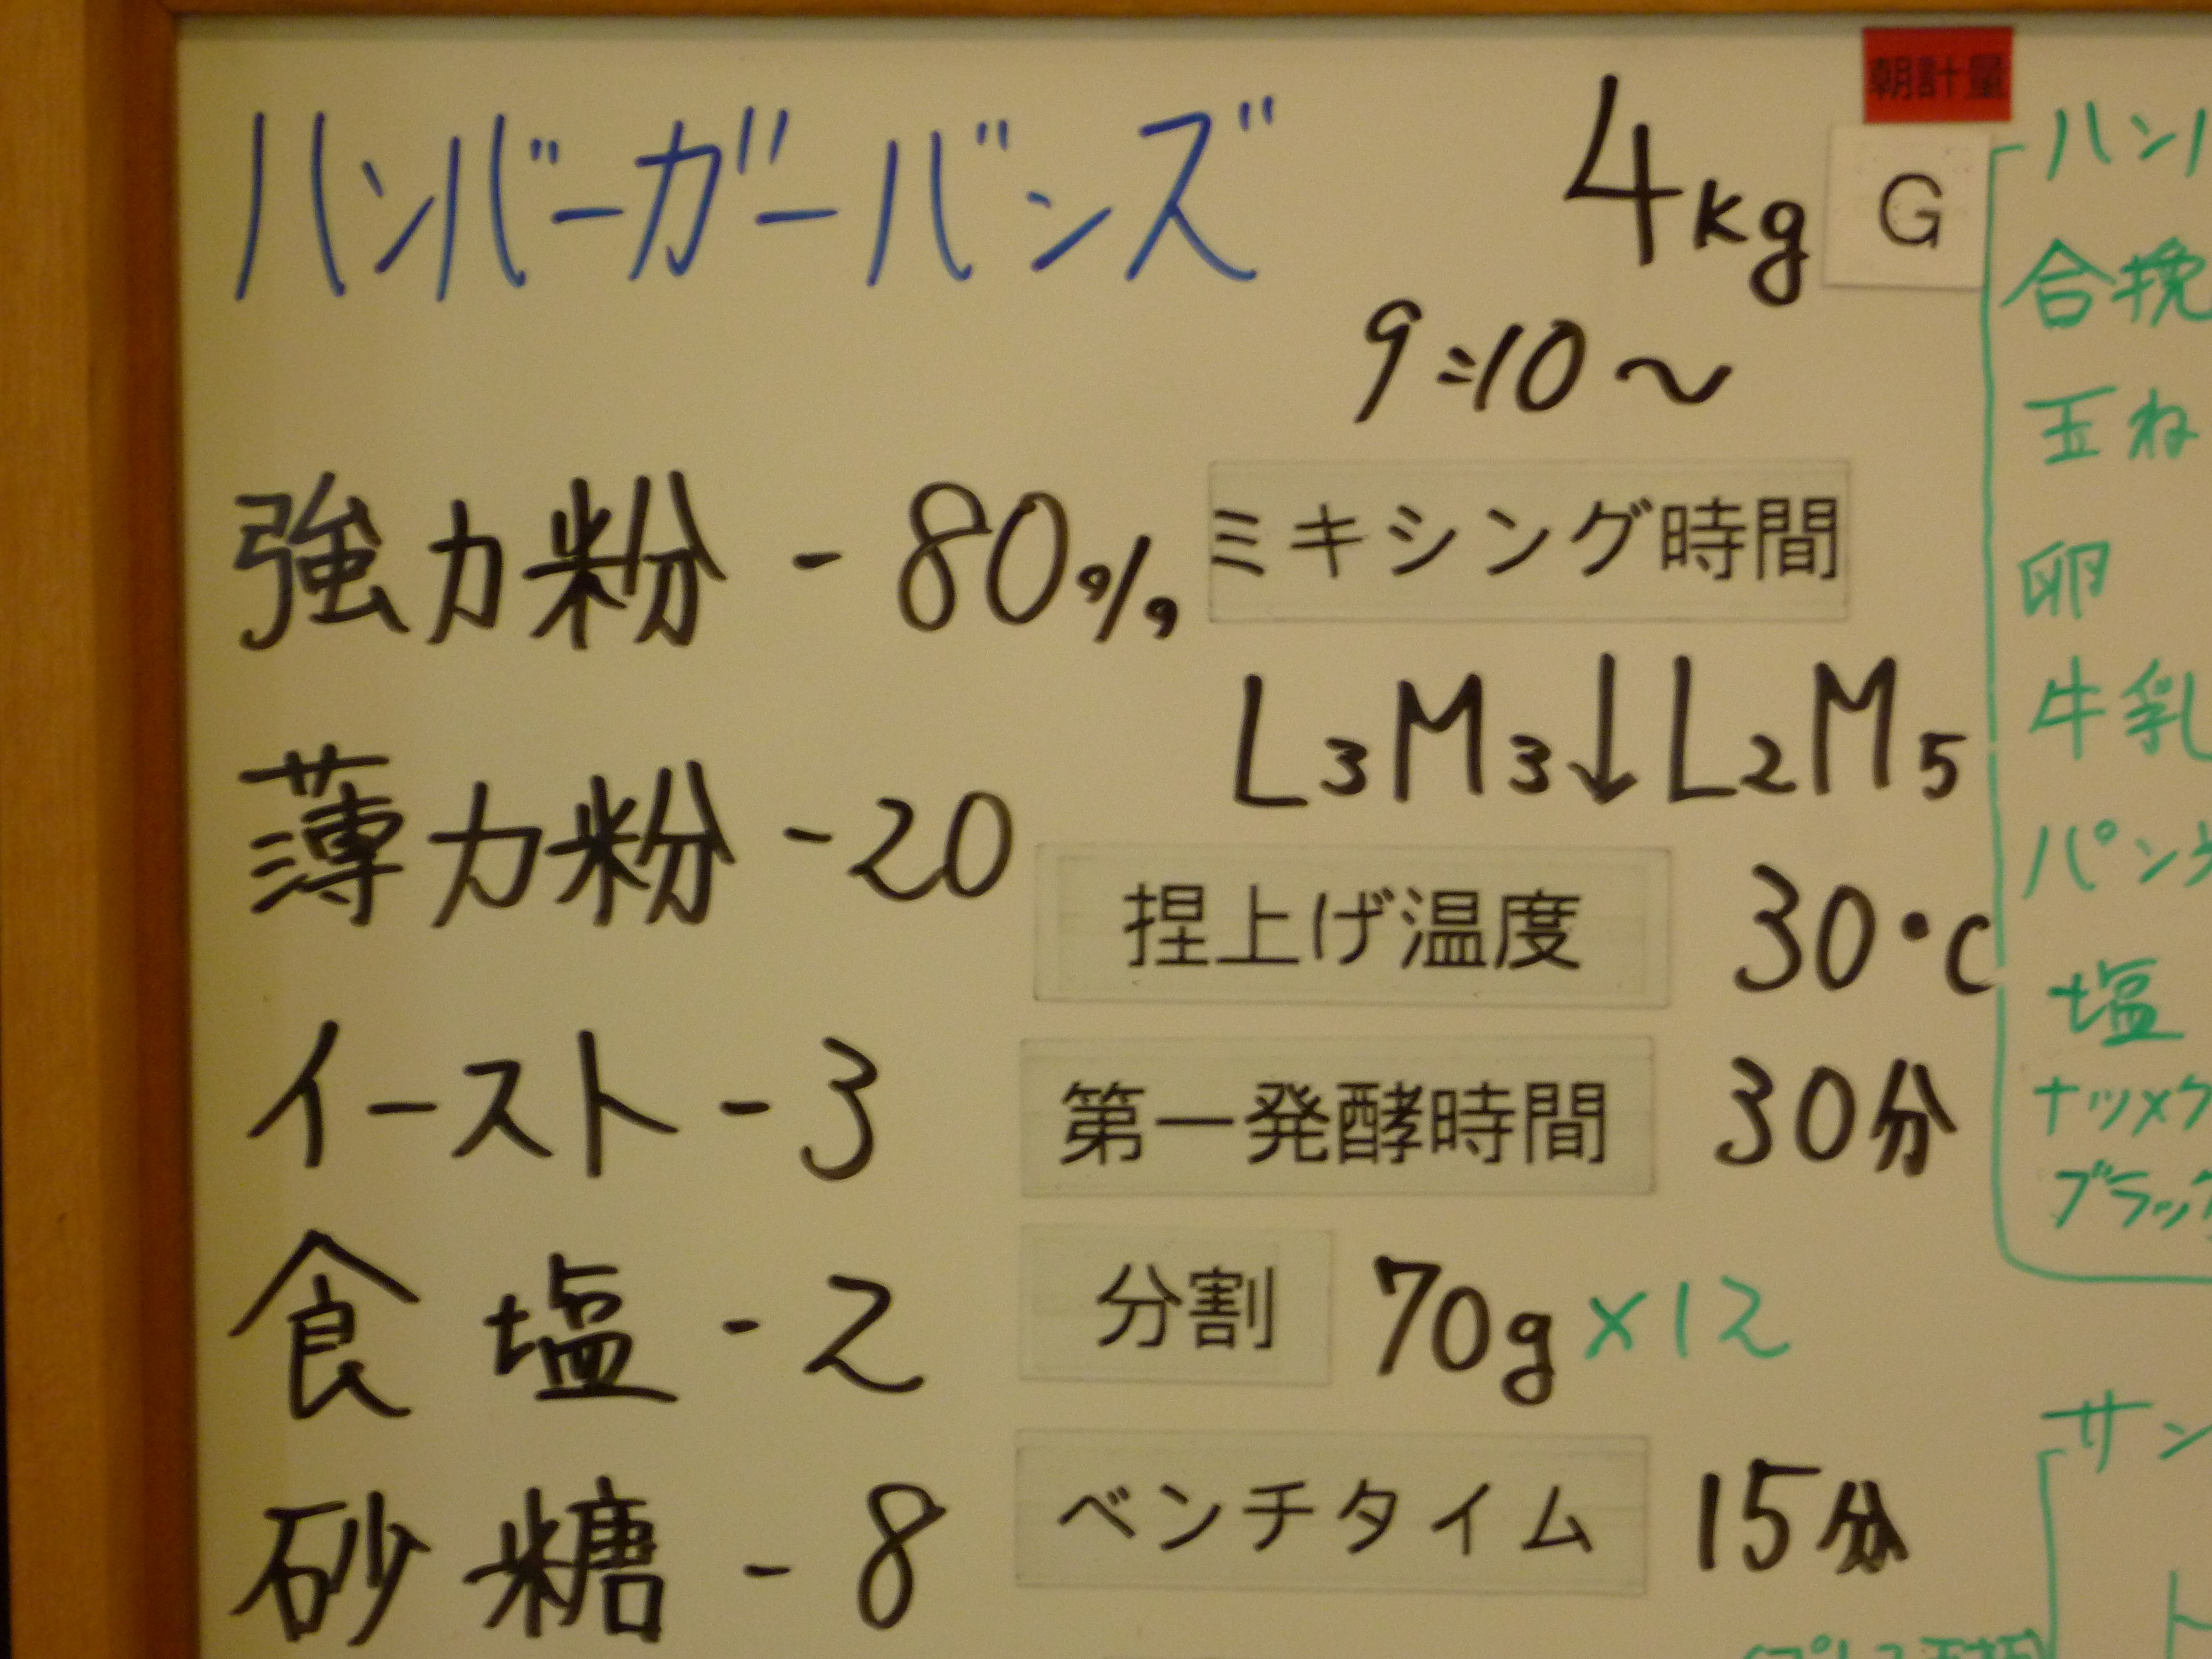 朝計量
ハンバーガーバンズ 4kg G
9:10～
強力粉 - 80%
ミキシング時間
L3M3↓L2M5
薄力粉 - 20
捏上げ温度 30°C
イースト - 3
第一発酵時間 30分
食塩 - 2
分割 70g×12
砂糖 - 8
ベンチタイム 15分
ハンバ
合挽
玉ね
卵
牛乳
パン
塩
ナツメグ
ブラック
サン
ト